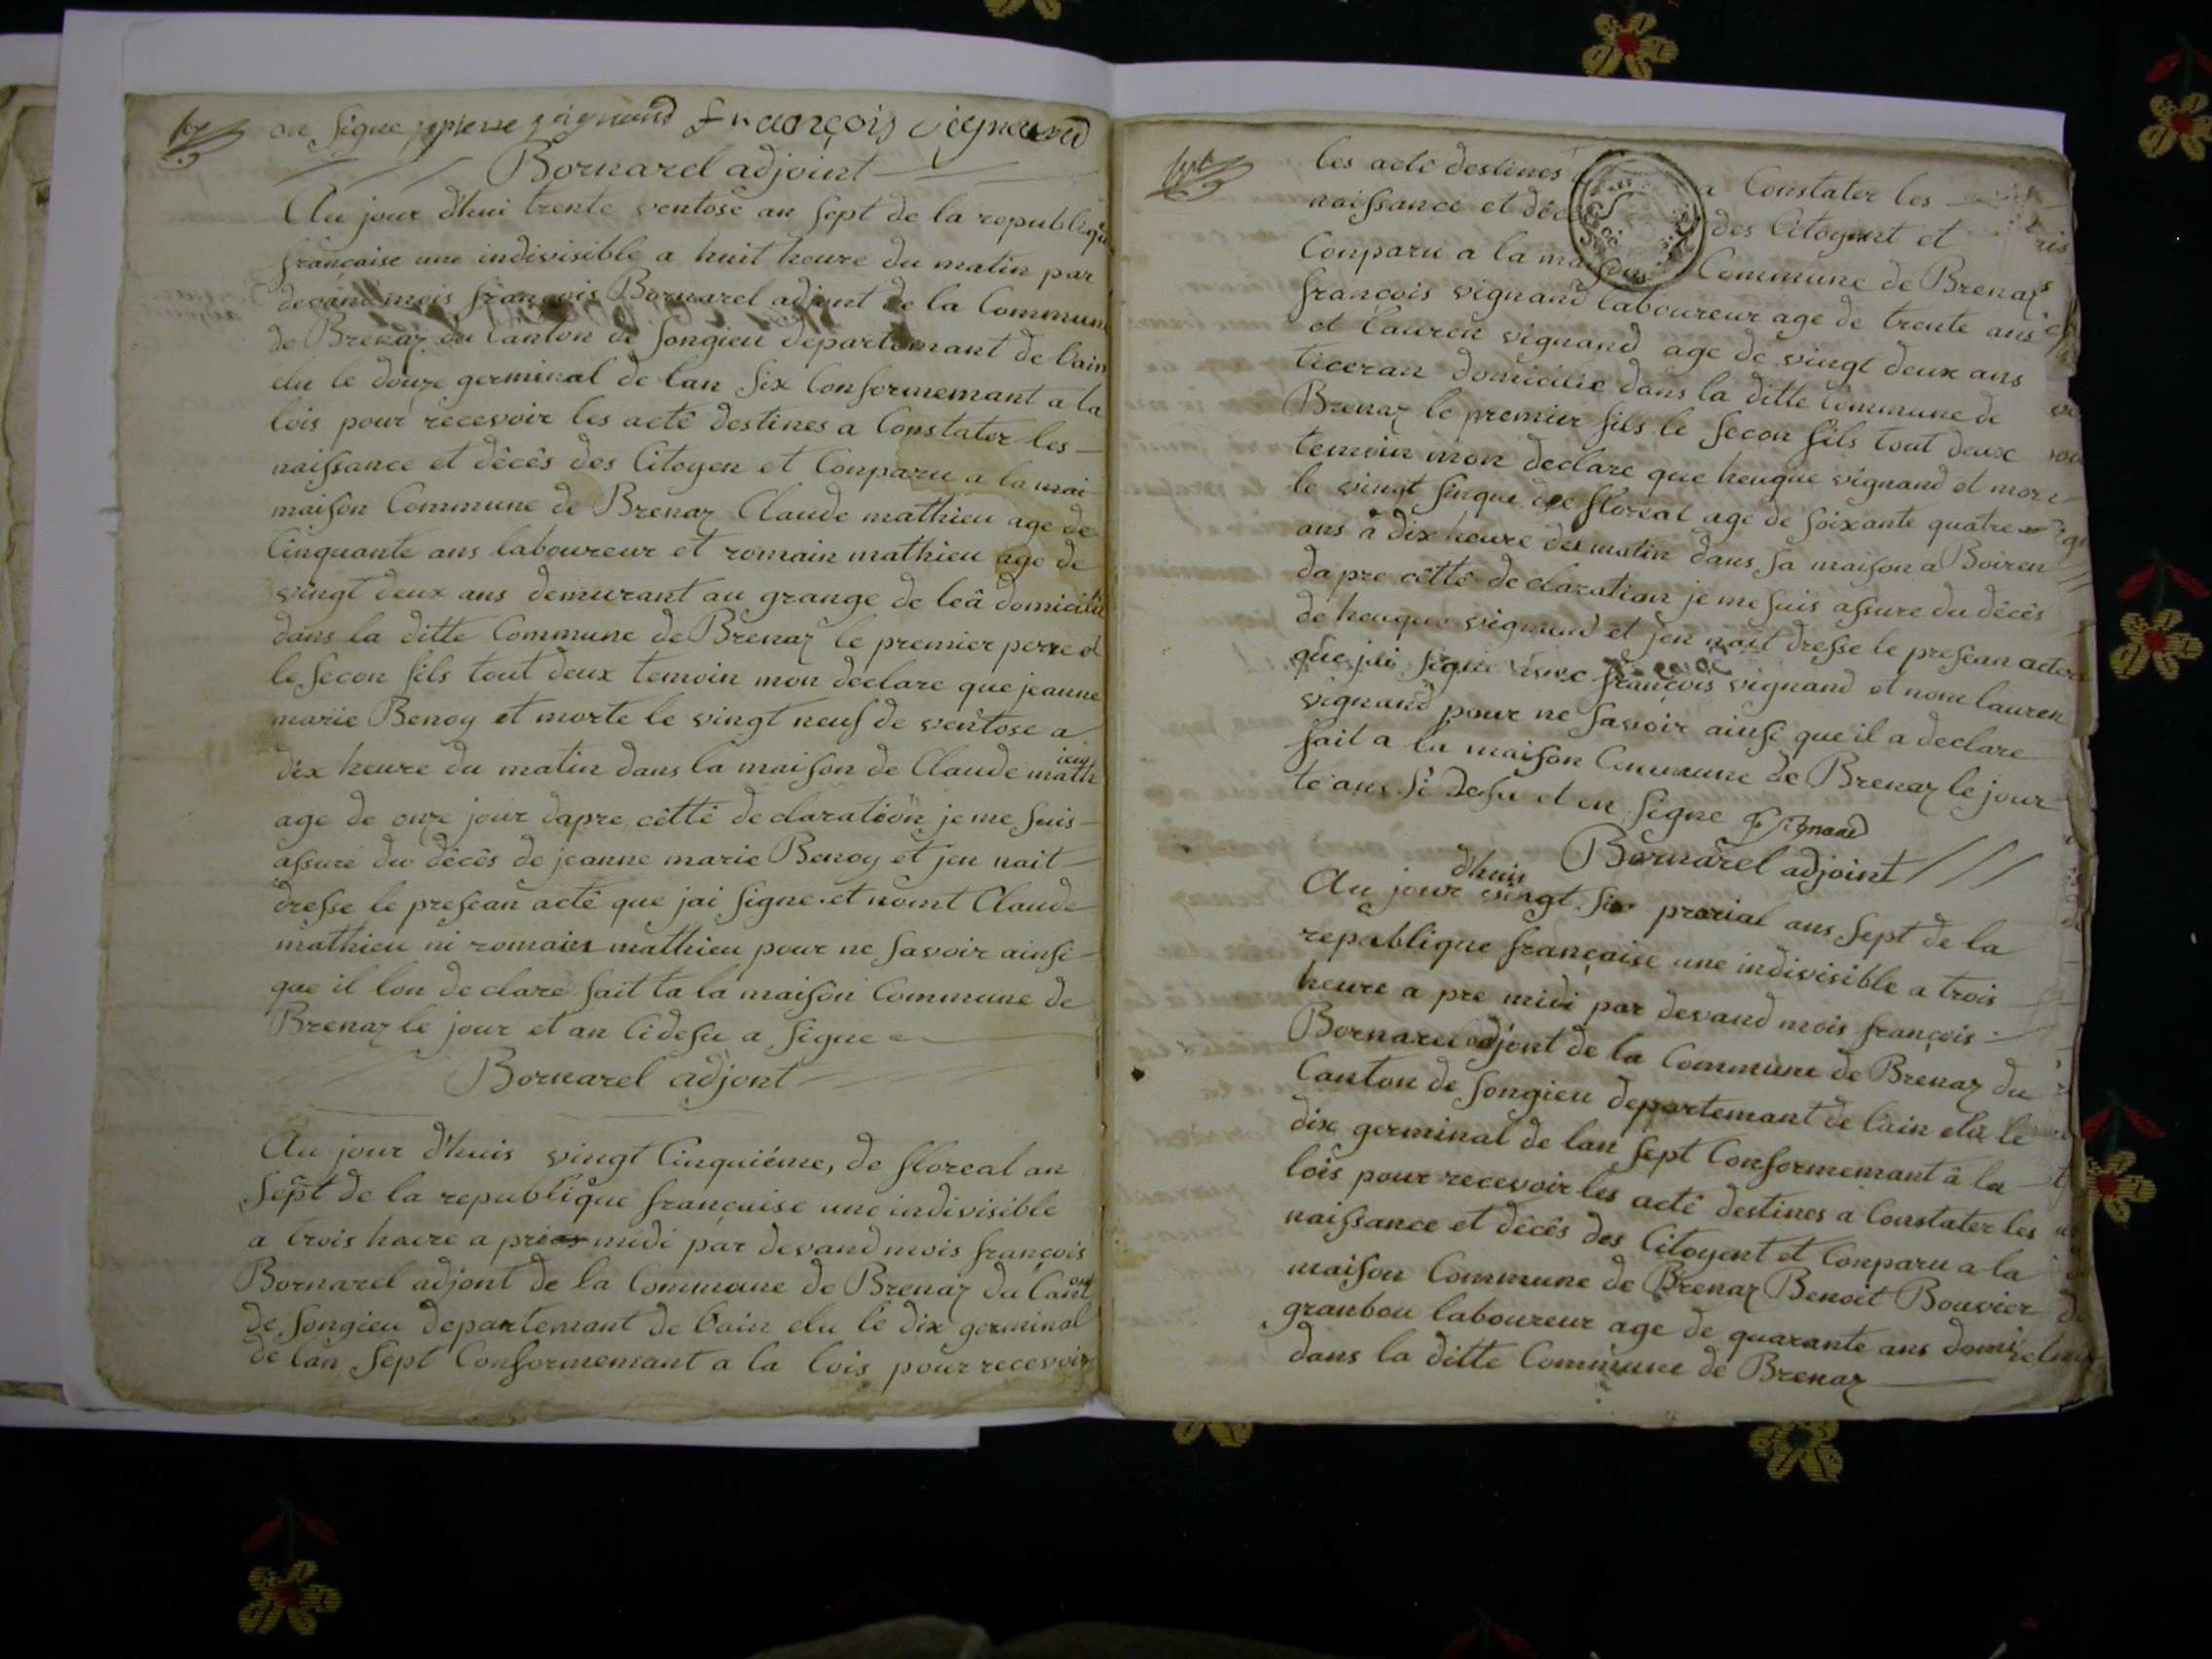 on signe pierre vignand françois vignand
Bornarel adjoint
Au jour d'hui trente ventose an sept de la republique
francaise une indivisible a huit heure du matin par
devand mois françois Bornarel adjont de la Commune
de Brenaz du Canton de songieu departemant de lain
elu le douze germinal de lan six Conformemant a la
lois pour recevoir les actê destines a Constater les
naissance et dêcês des Citoyen et Conparu a la mai
maison Commune de Brenaz Claude mathieu age de
Cinquante ans laboureur et romain mathieu age de
vingt deux ans demurant au grange de leâ domicilie
dans la ditte Commune de Brenaz le premier perre et
le secon fils tout deux temoin mon declare que jeanne
marie Benoy et morte le vingt neuf de ventose a
dix heure du matin dans la maison de Claude mathieu
age de onze jour dapre cêtté declaration je me suis
assure du dêcês de jeanne marie Benoy et jen nait
dresse le presean actê que jai signe et nomt Claude
mathieu ni romaien mathieu pour ne savoir ainsi
que il lon declare fait ta la maison Commune de
Brenaz le jour et an Cidesu a signe
Bornarel adjont
Au jour d'huis vingt Cinquiéme, de floreal an
sept de la republique française une indivisible
a trois heure a pries midi par devand mois françois
Bornarel adjont de la Commune de Brenaz du Canton
de songieu departemant de lain elu le dix germinal
de lan sept Conformemant a la lois pour recevoir
les actê destines a Constater les
naissance et décês des Citoyent et
Conparu a la maison Commune de Brenaz
françois vignand laboureur age de trente ans
et lauren vignand age de vingt deux ans
ticeran domicilie dans la ditte Commune de
Brenaz le premier fils le secon fils tout deux
temoin mon declare que heuque vignand et more
le vingt sinque de floreal age de soixante quatre
ans â dix heure du matin dans sa maison a Boiren
dapre cêttê declaration je me suis assure du dêcês
de heuque vignand et jen nait dresse le presean acte
que jai signe avec françois vignand et nom lauren
vignand pour ne savoir ainsi que il a declare
fait a la maison Commune de Brenaz le jour
te ans si desu et on signe f vignand
Bornarel adjoint
Au jour d'huis vingt six prarial ans sept de la
republique française une indivisible a trois
heure a pre midi par devand mois françois
Bornarel adjont de la Commune de Brenaz du
Canton de songieu departemant de lain elu le
dix germinal de lan sept Conformemant â la
lois pour recevoir les actê destines a Constater les
naissance et dêcês des Citoyent et Conparu a la
maison Commune de Brenaz Benoit Bouvier
granbou laboureur age de quarante ans domi
dans la ditte Commune de Brenaz